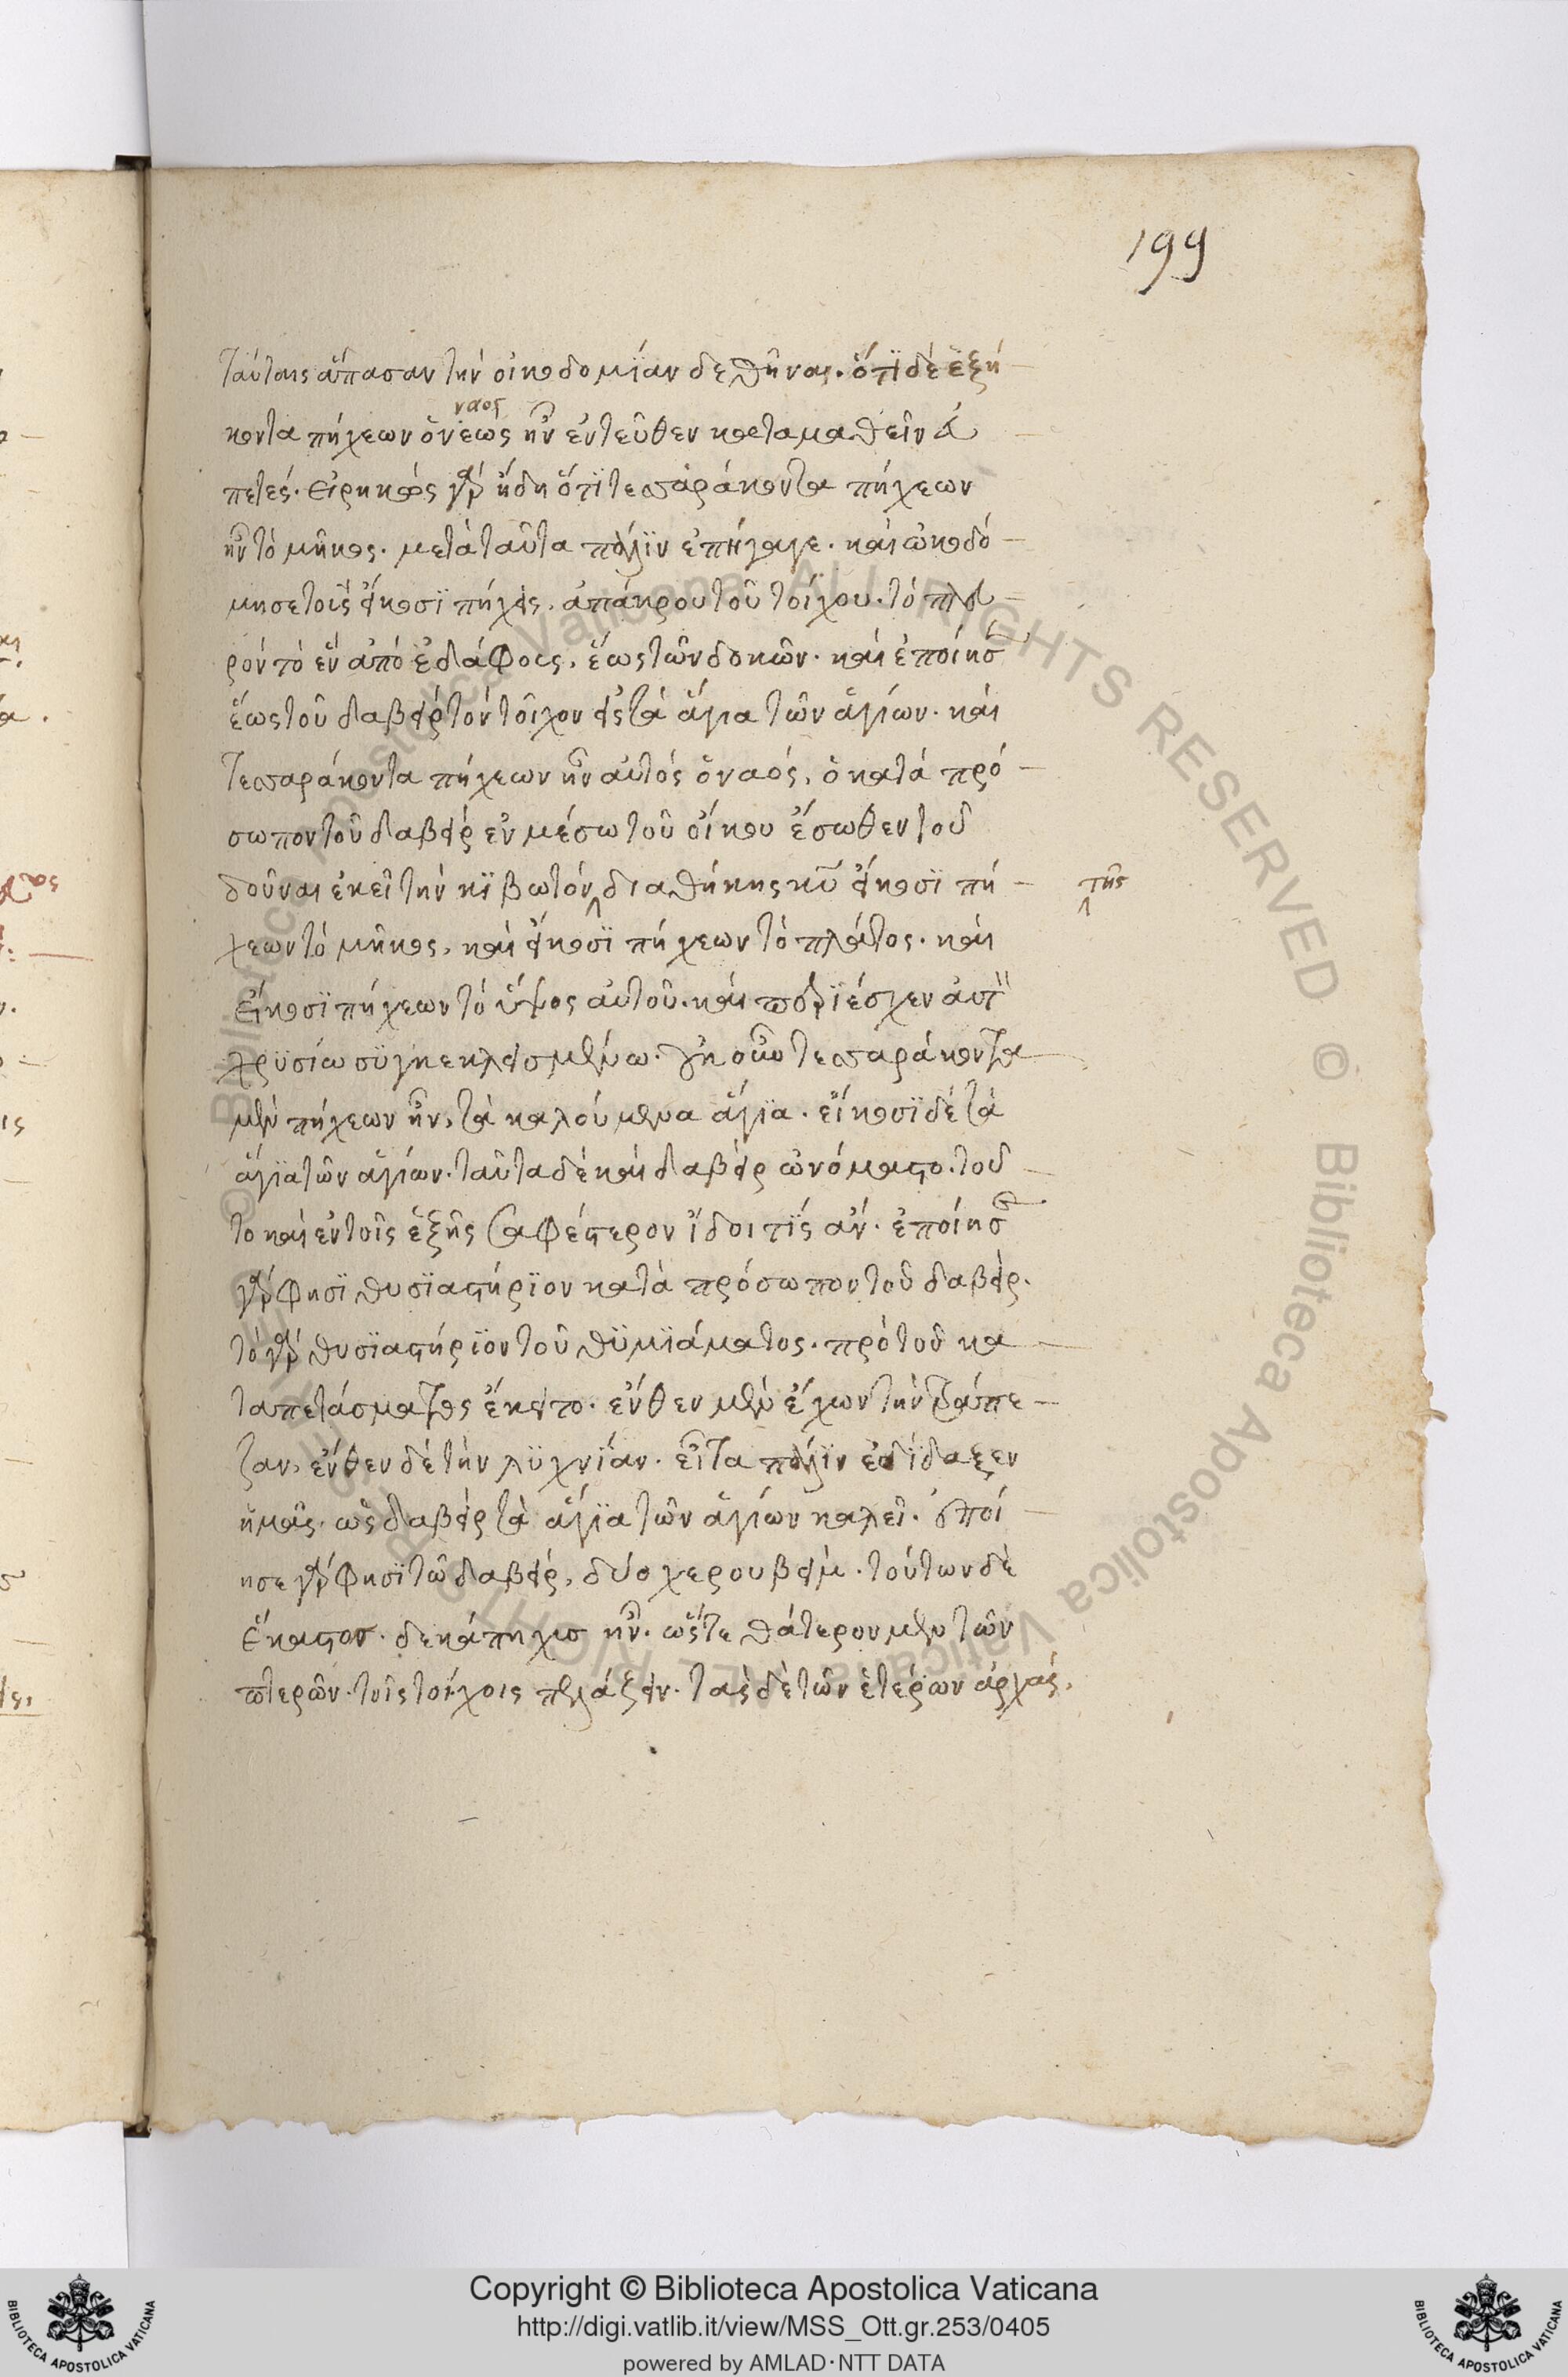 199
ταύταις ἅπασαν τὴν οἰκοδομΐαν δεθῆναι. ὅτϊ δὲ ἑξή
ναος
κοντα πήχεων ὁ νεὼς ἦν ἐντεῦθεν καταμαθεῖν εὐ
πετές. εἰρηκὼς γὰρ ἤδη ὅτϊ τεσσαράκοντα πήχεων
ἦν τὸ μῆκος. μετὰ ταῦτα πάλϊν ἐπήγαγε. καὶ ὠκοδό
μησε τοὺς εἴκοσϊ πήχεις, ἀπάκρου τοῦ τοίχου. τὸ πλευ
ρὸν τὸ ἓν ἀπὸ ἐδάφους, ἕως τῶν δοκῶν. καὶ ἐποίησεν
ἕως τοῦ δαβεὶρ τὸν τοῖχον εἰς τὰ ἅγια τῶν ἁγίων. καὶ
τεσσαράκοντα πήχεων ἦν αὐτὸς ὁ ναός, ὁ κατὰ πρό
σωπον τοῦ δαβεὶρ ἐν μέσω τοῦ οἴκου ἔσωθεν τοῦ
δοῦναι ἐκεῖ τὴν κϊβωτὸν διαθήκης κυ εἴκοσϊ πή
τῆς
χεων τὸ μῆκος, καὶ εἴκοσϊ πήχεων τὸ πλάτος. καὶ
εἴκοσϊ πήχεων τὸ ὕψος αὐτοῦ. καὶ περϊέσχεν αὐτὸν
χρϋσίω σϋγκεκλεισμένω. γῆ οὖν τεσσαράκοντα
μὲν πήχεων ἦν, τὰ καλούμενα ἅγϊα. εἴκοσϊ δὲ τὰ
ἅγϊα τῶν ἁγίων. ταῦτα δὲ καὶ δαβεὶρ ὠνόμαστο. τοῦ
το καὶ ἐν τοῖς ἑξῆς σαφέστερον ἴδοι τϊς ἄν. ἐποίησεν
γὰρ φησϊ θυσϊαστήρϊον κατὰ πρόσωπον τοῦ δαβεὶρ.
τὸ γὰρ θυσϊαστήρϊον τοῦ θϋμϊάματος. πρὸ τοῦ κα
ταπετάσματος ἔκειτο. ἔνθεν μὲν ἔχων τὴν τράπε
ζαν, ἔνθεν δὲ τὴν λϋχνΐαν. εἶτα πάλϊν ἐδΐδαξεν
ἡμᾶς. ὡς δαβεὶρ τὰ ἅγϊα τῶν ἁγίων καλεῖ. ἐποί
ησε γὰρ φησϊ τῶ δαβεὶρ, δύο χερουβεὶμ. τούτων δὲ
ἕκαστον. δεκάπηχυ ἦν. ὥστε θάτερον μὲν τῶν
πτερῶν. τοῖς τοίχοις πελάζειν. τὰς δὲ τῶν ἑτέρων ἀρχὰς,
© Biblioteca Apostolica Vaticana ALL RIGHTS RESERVED
Copyright © Biblioteca Apostolica Vaticana
http://digi.vatlib.it/view/MSS_Ott.gr.253/0405
powered by AMLAD·NTT DATA
BIBLIOTECA APOSTOLICA VATICANA
BIBLIOTECA APOSTOLICA VATICANA